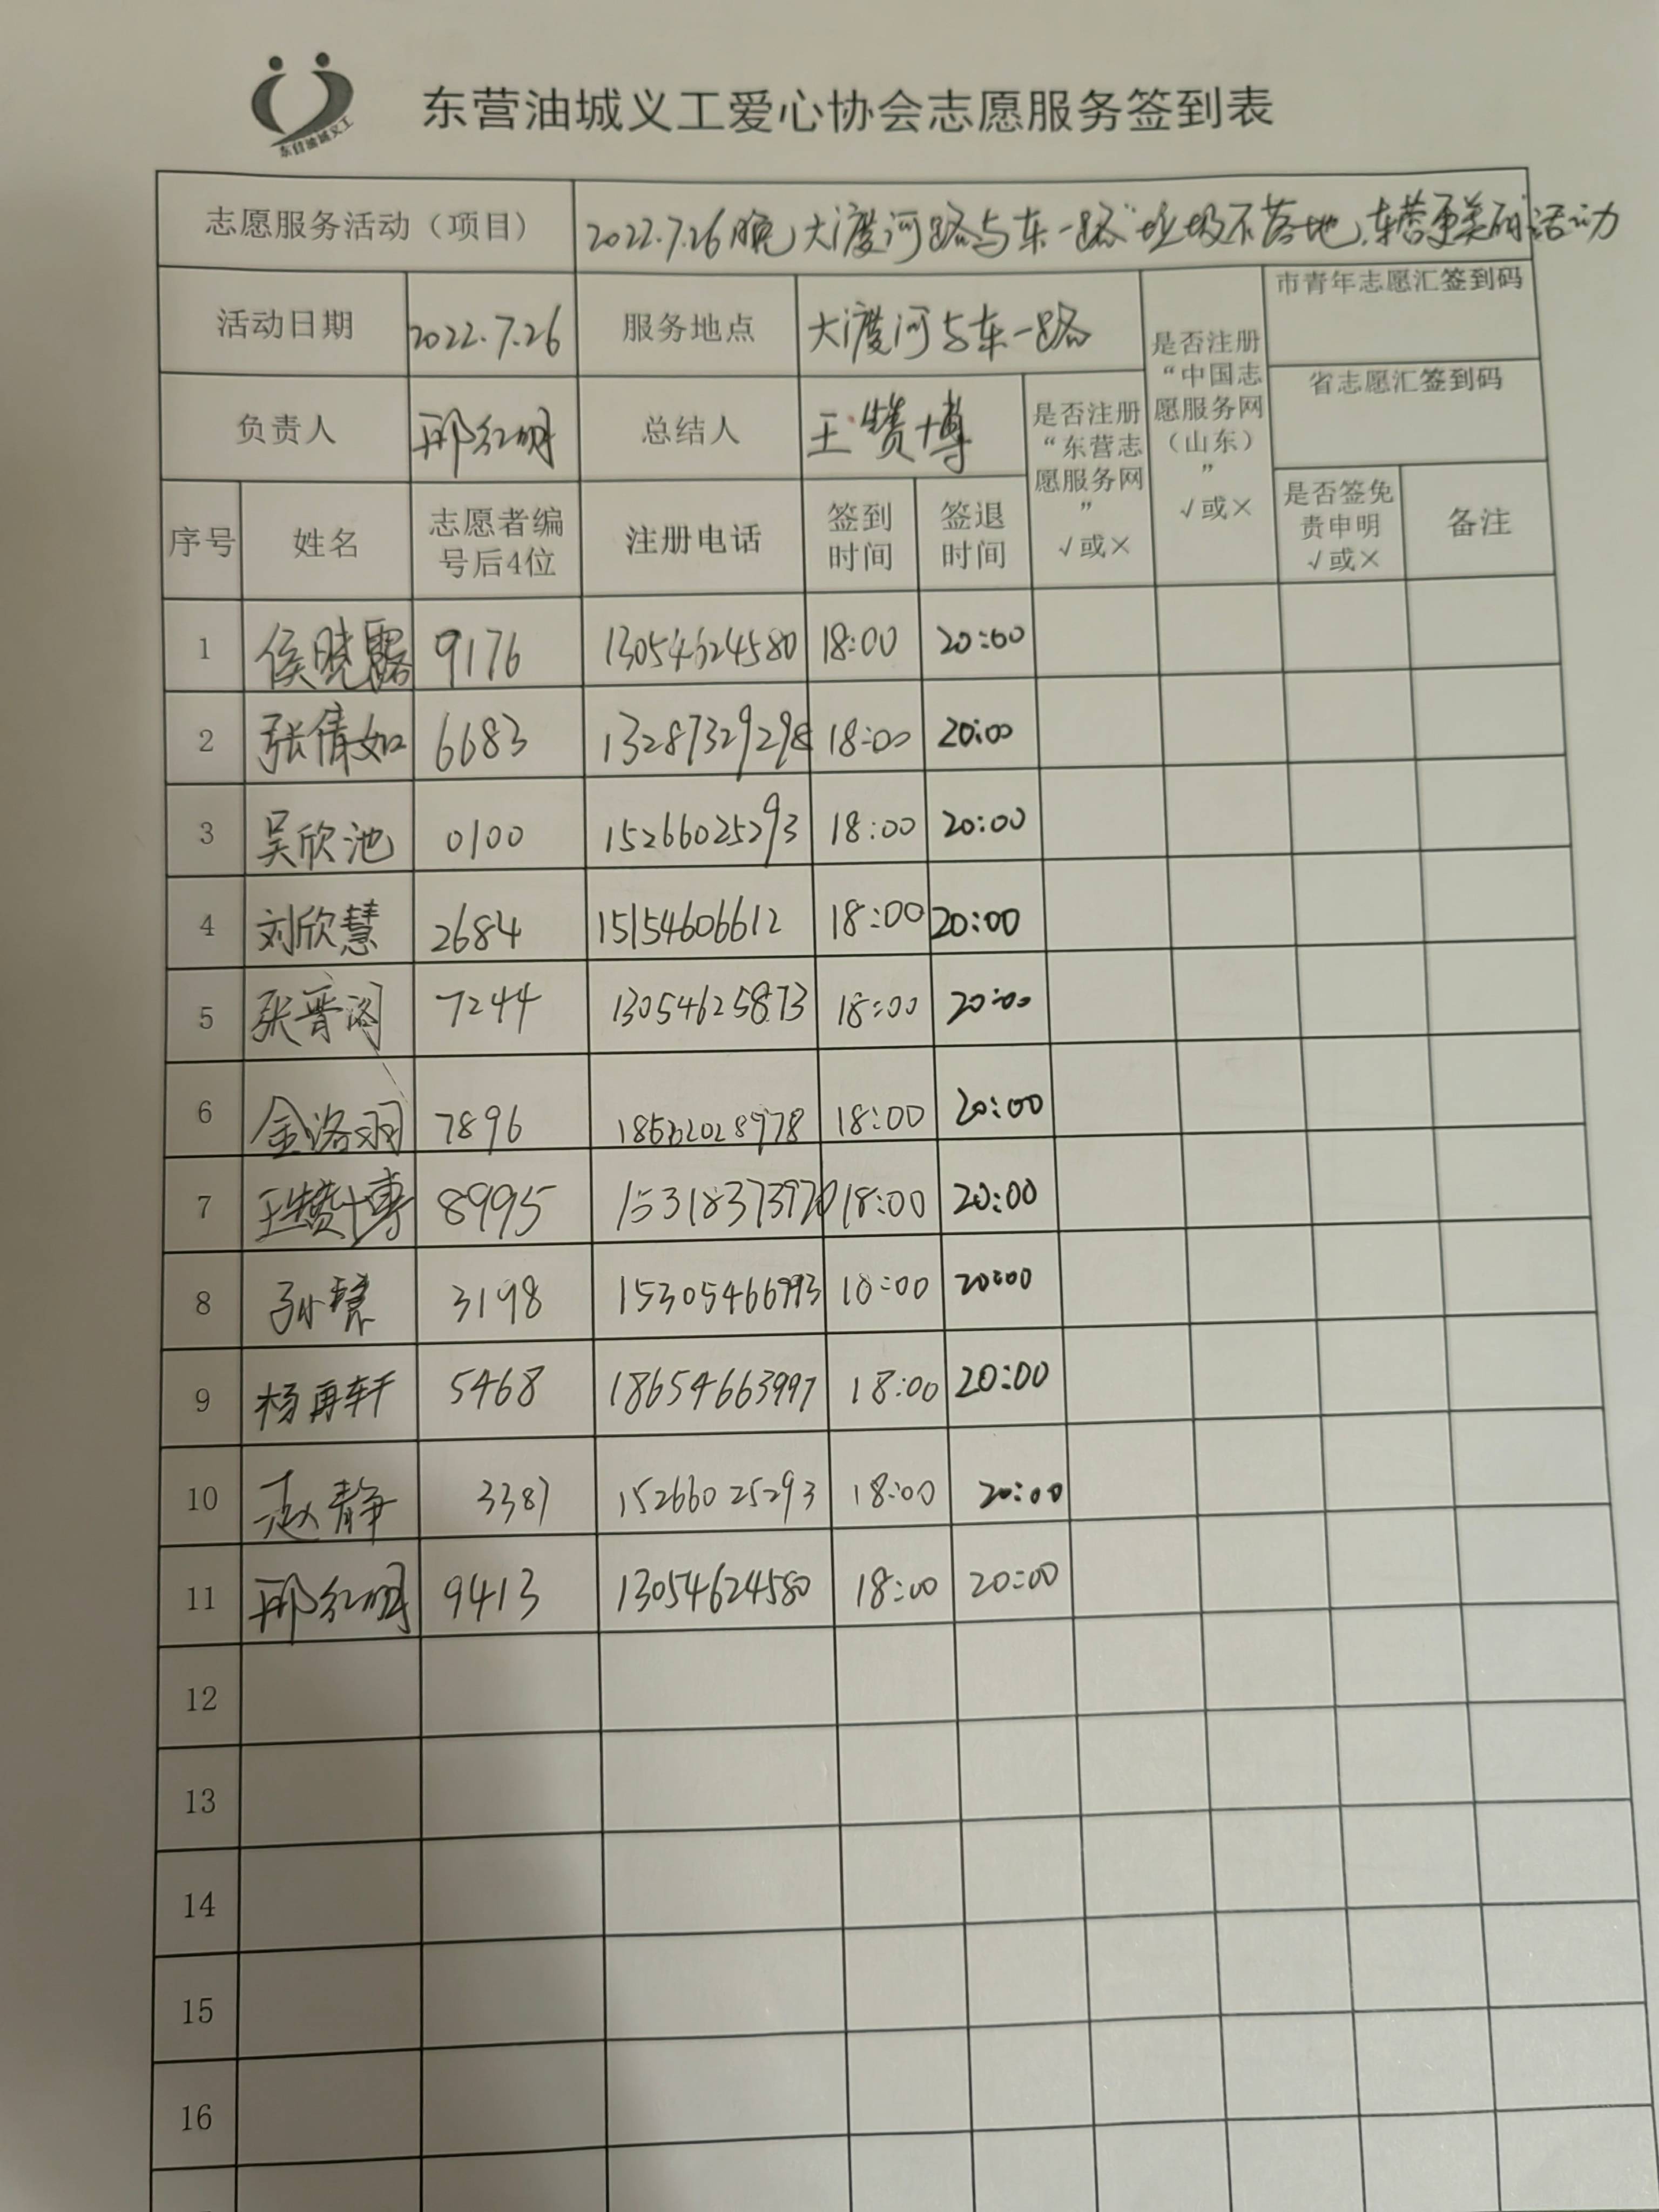 东营油城义工
东营油城义工爱心协会志愿服务签到表
志愿服务活动（项目） 2022.7.26晚大渡河路与东一路“垃圾不落地,东营更美丽”活动
活动日期 2022.7.26 服务地点 大渡河与东一路 是否注册“中国志愿服务网（山东）” √或× 市青年志愿汇签到码
省志愿汇签到码
负责人 邢红明 总结人 王赞博 是否注册“东营志愿服务网” √或×
序号 姓名 志愿者编号后4位 注册电话 签到时间 签退时间 是否签免责申明 √或× 备注
1 侯晓露 9176 13054624580 18:00 20:00
2 张倩如 6683 13287329298 18:00 20:00
3 吴欣池 0100 15266025293 18:00 20:00
4 刘欣慧 2684 15154606612 18:00 20:00
5 张晋阁 7244 13054625873 18:00 20:00
6 金洛羽 7896 18:00 20:00
7 王赞博 8995 15318373970 18:00 20:00
8 孙慧 3198 15305466993 18:00 20:00
9 杨再轩 5468 18654663997 18:00 20:00
10 赵静 3387 15266025293 18:00 20:00
11 邢红明 9413 13054624580 18:00 20:00
12
13
14
15
16